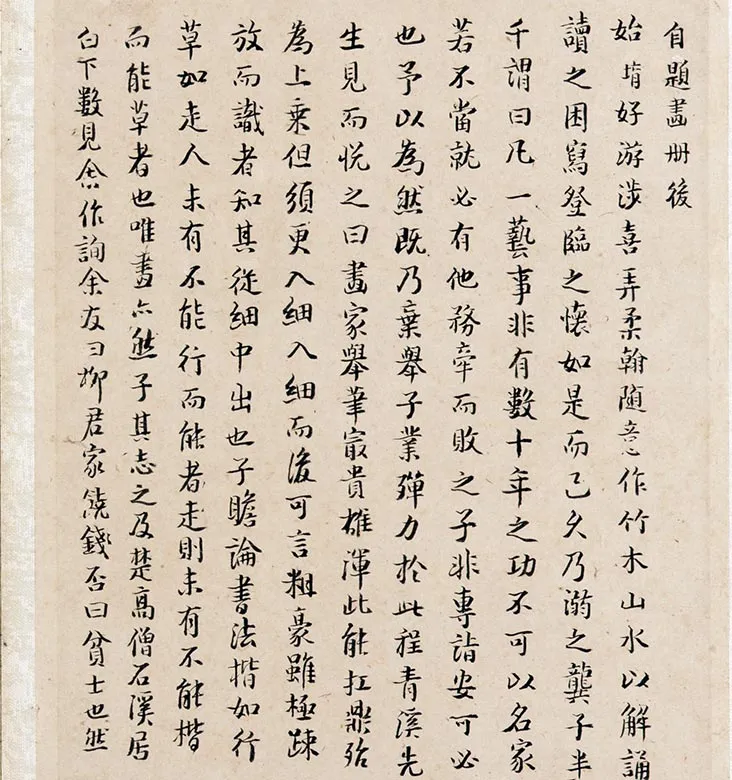 自題畫冊後
始堉好游涉喜弄柔翰隨意作竹木山水以解誦
讀之困寫登臨之懷如是而已久乃溺之龔子半
千謂曰凡一藝事非有數十年之功不可以名家
若不當就必有他務牽而敗之子非專詣安可必
也予以為然既乃棄舉子業殫力於此程青溪先
生見而悅之曰畫家舉筆最貴雄渾此能扛鼎殆
為上乘但須更入細入細而後可言粗豪雖極踈
放而識者知其從細中出也子瞻論書法揩如行
草如走人未有不能行而能者走則未有不能楷
而能草者也唯畫亦然子其志之及楚高僧石溪居
白下數見余作詢余友曰柳君家饒錢否曰貧士也然